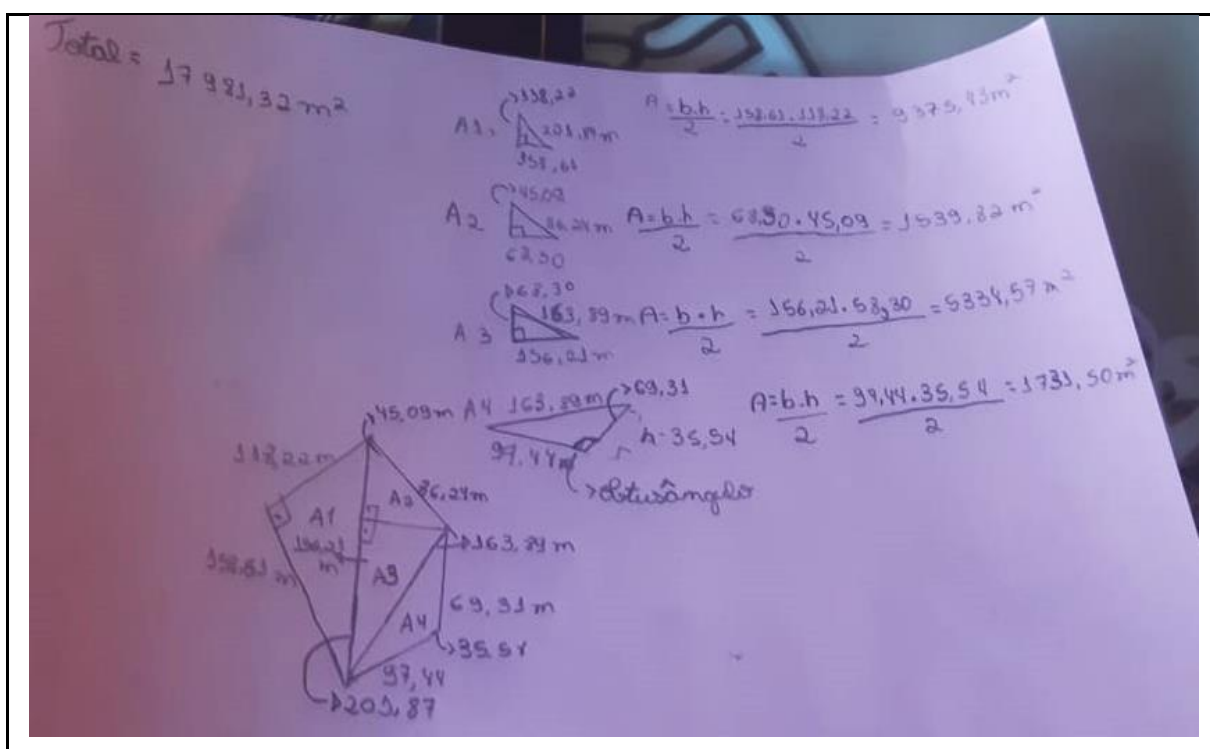 Total = 17981,32 m²
A1, 118,22
201,87m
158,61
A = b.h/2 = 158,61.118,22/2 = 9375,43m²
A2 45,09
86,24m
68,30
A=b.h/2 = 68,30.45,09/2 = 1539,82 m²
A3 68,30
163,89m
156,21m
A= b.h/2 = 156,21.68,30/2 = 5334,57 m²
A4 163,89m 69,31
97,44m h-35,54
obtusângulo
A=b.h/2 = 97,44.35,54/2 = 1731,50m²
45,09m
118,22m
A1
A2
86,24m
156,21
m
163,89m
158,61 m
A3
A4
69,31m
35,54
97,44
201,87